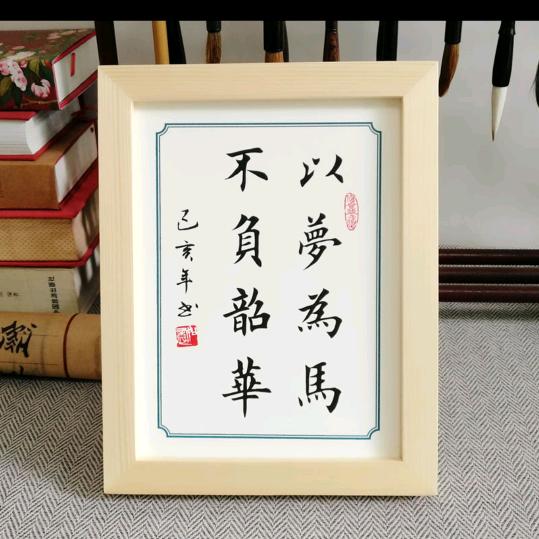 以夢為馬
不負韶華
己亥年书